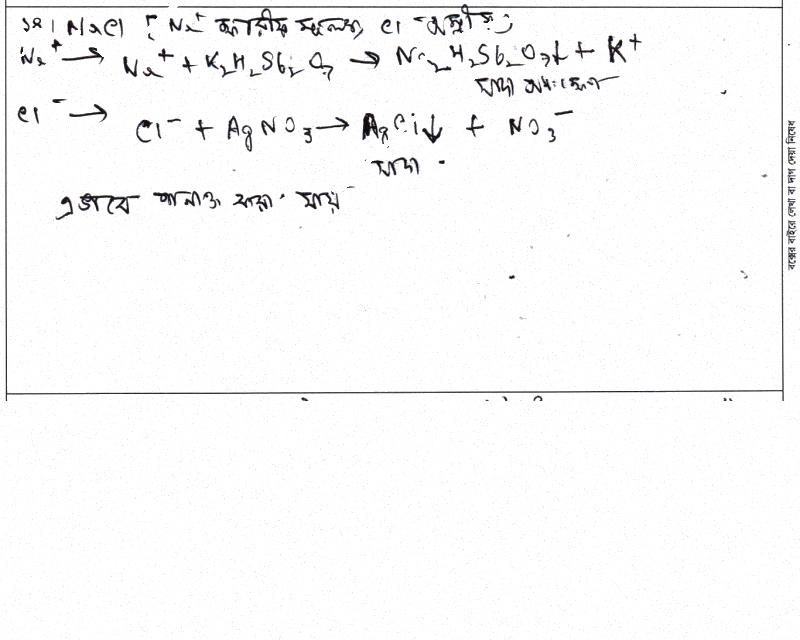 ১২। NaCl [ Na⁺ ক্ষারীয় মূলক, Cl⁻ অম্লীয় ]
Na⁺ → Na⁺ + K₂H₂Sb₂O₇ → Na₂H₂Sb₂O₇↓ + K⁺
সাদা অধঃক্ষেপ
Cl⁻ → Cl⁻ + AgNO₃ → AgCl↓ + NO₃⁻
সাদা
এভাবে শনাক্ত করা যায়
বক্সের বাইরে লেখা বা দাগ দেয়া নিষেধ